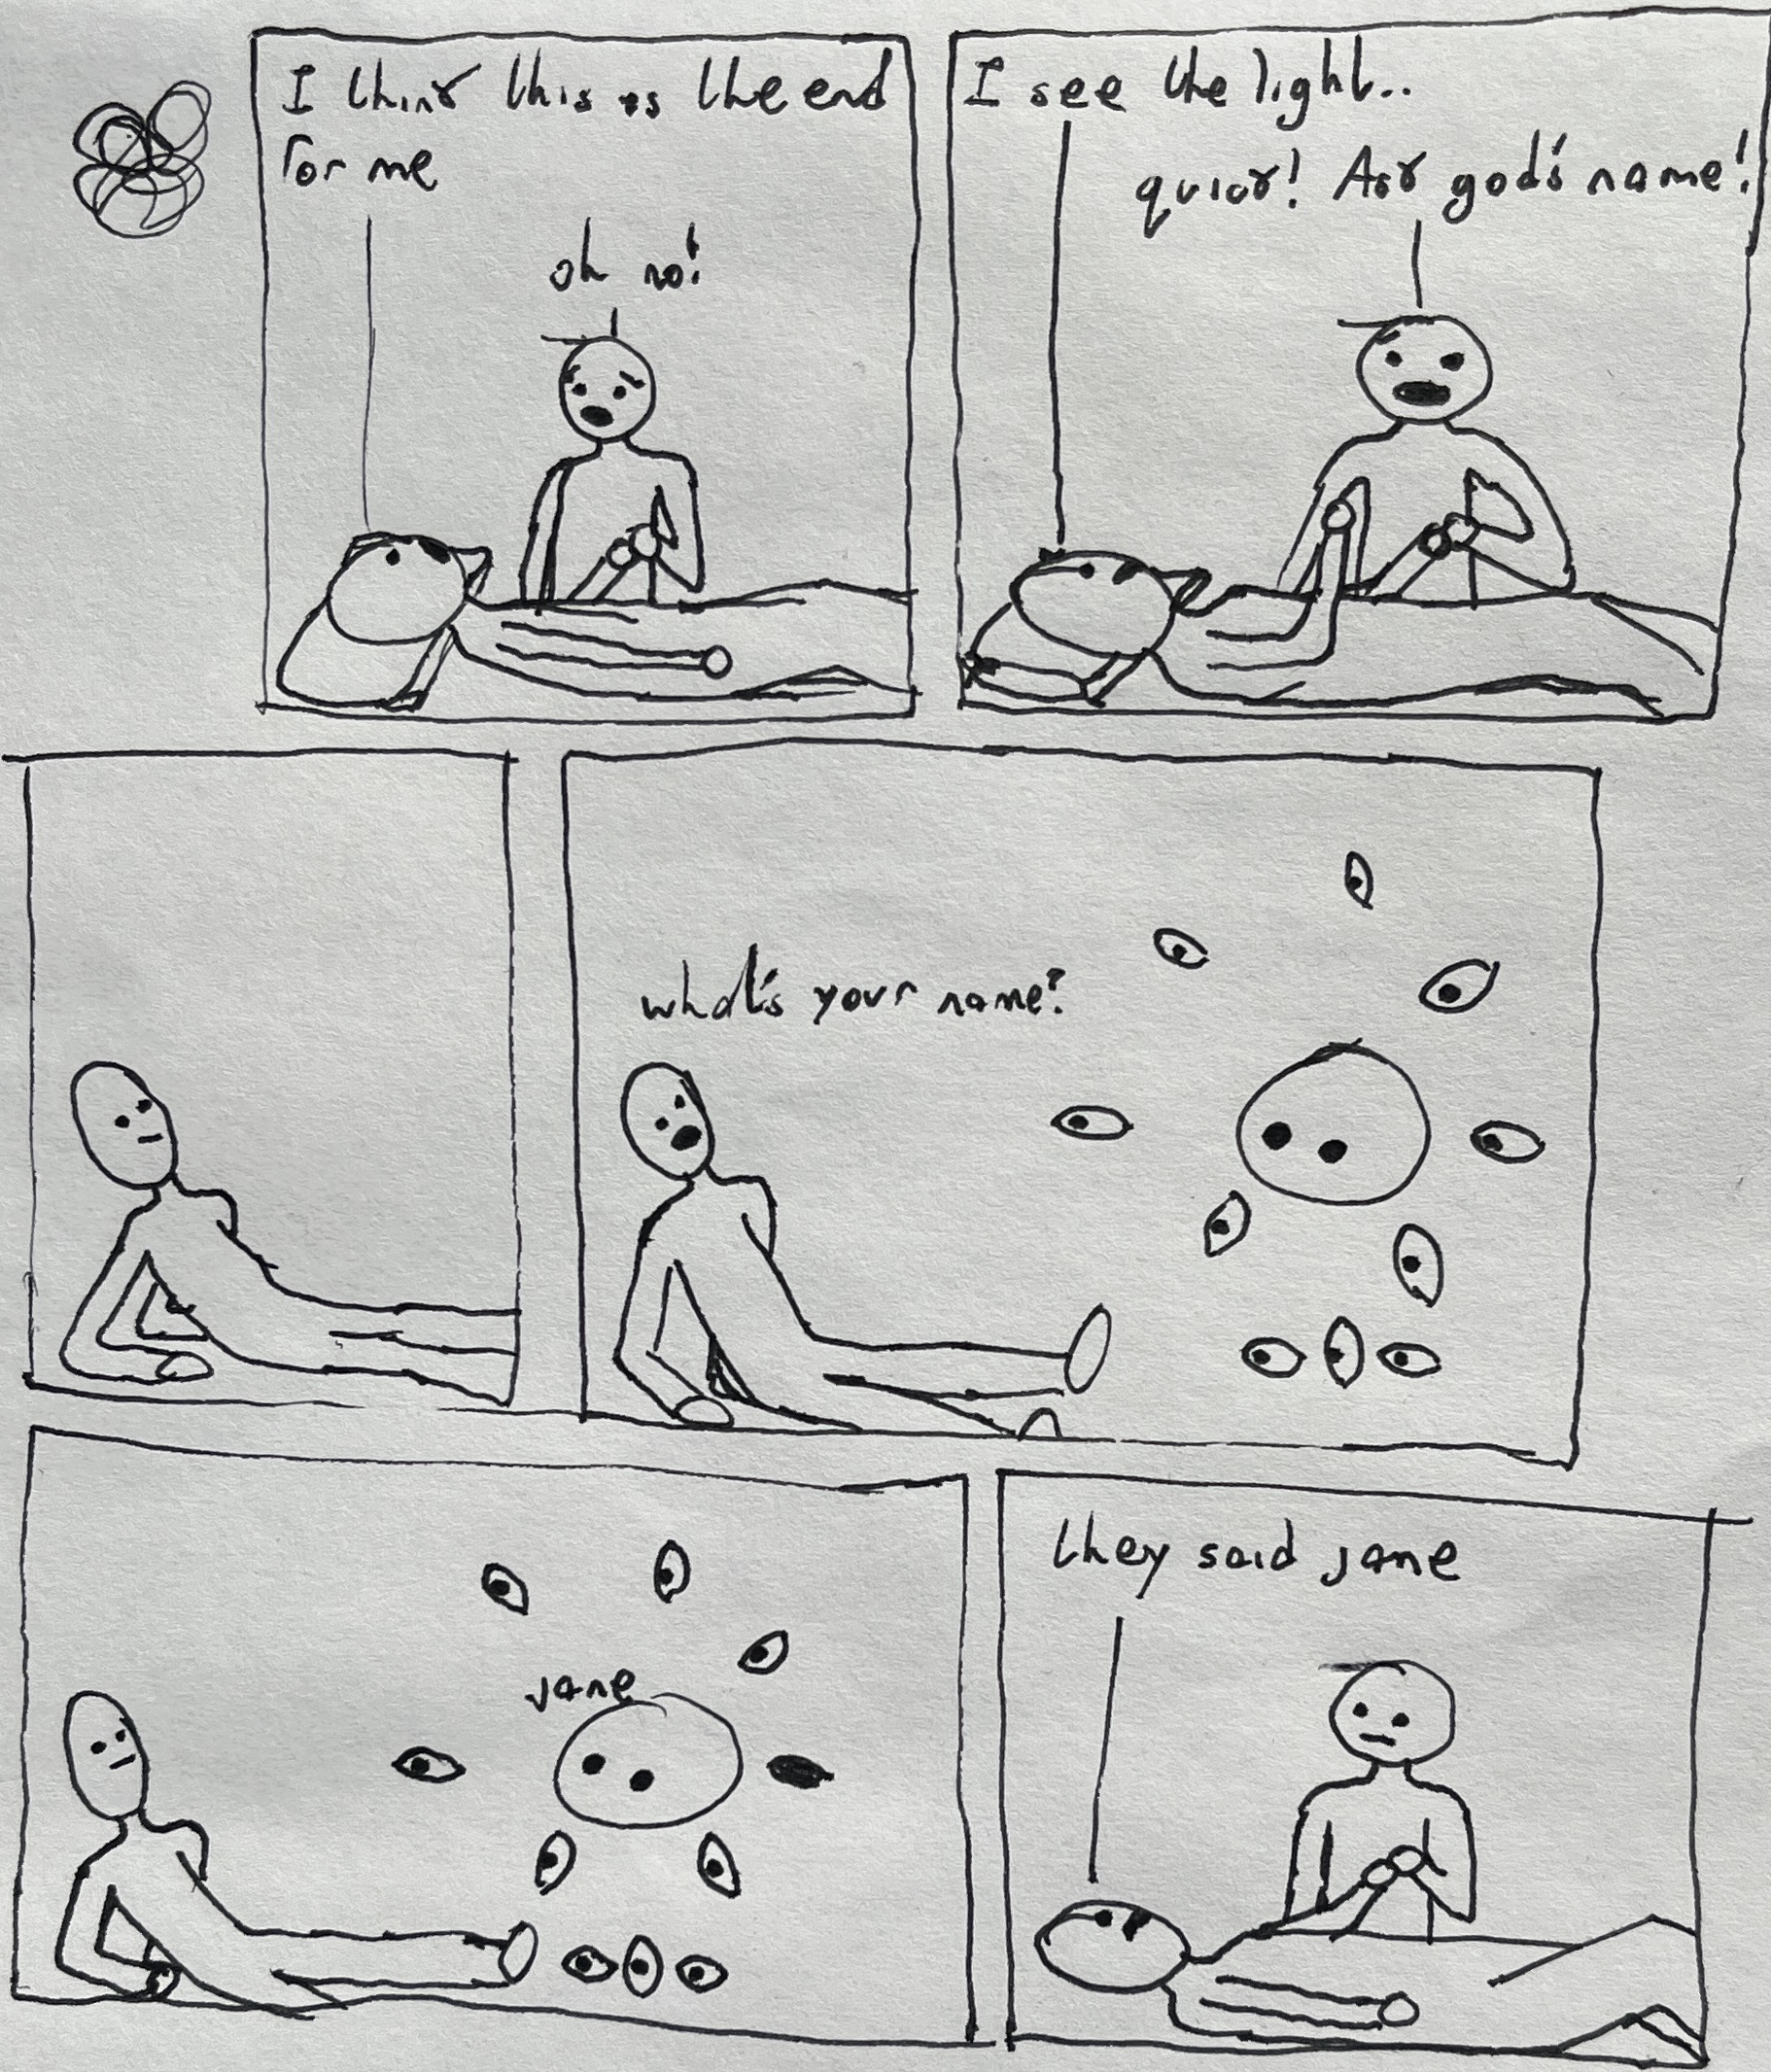 I think this is the end
for me
oh no!
I see the light..
quick! Ask god's name!
what's your name?
jane
they said jane